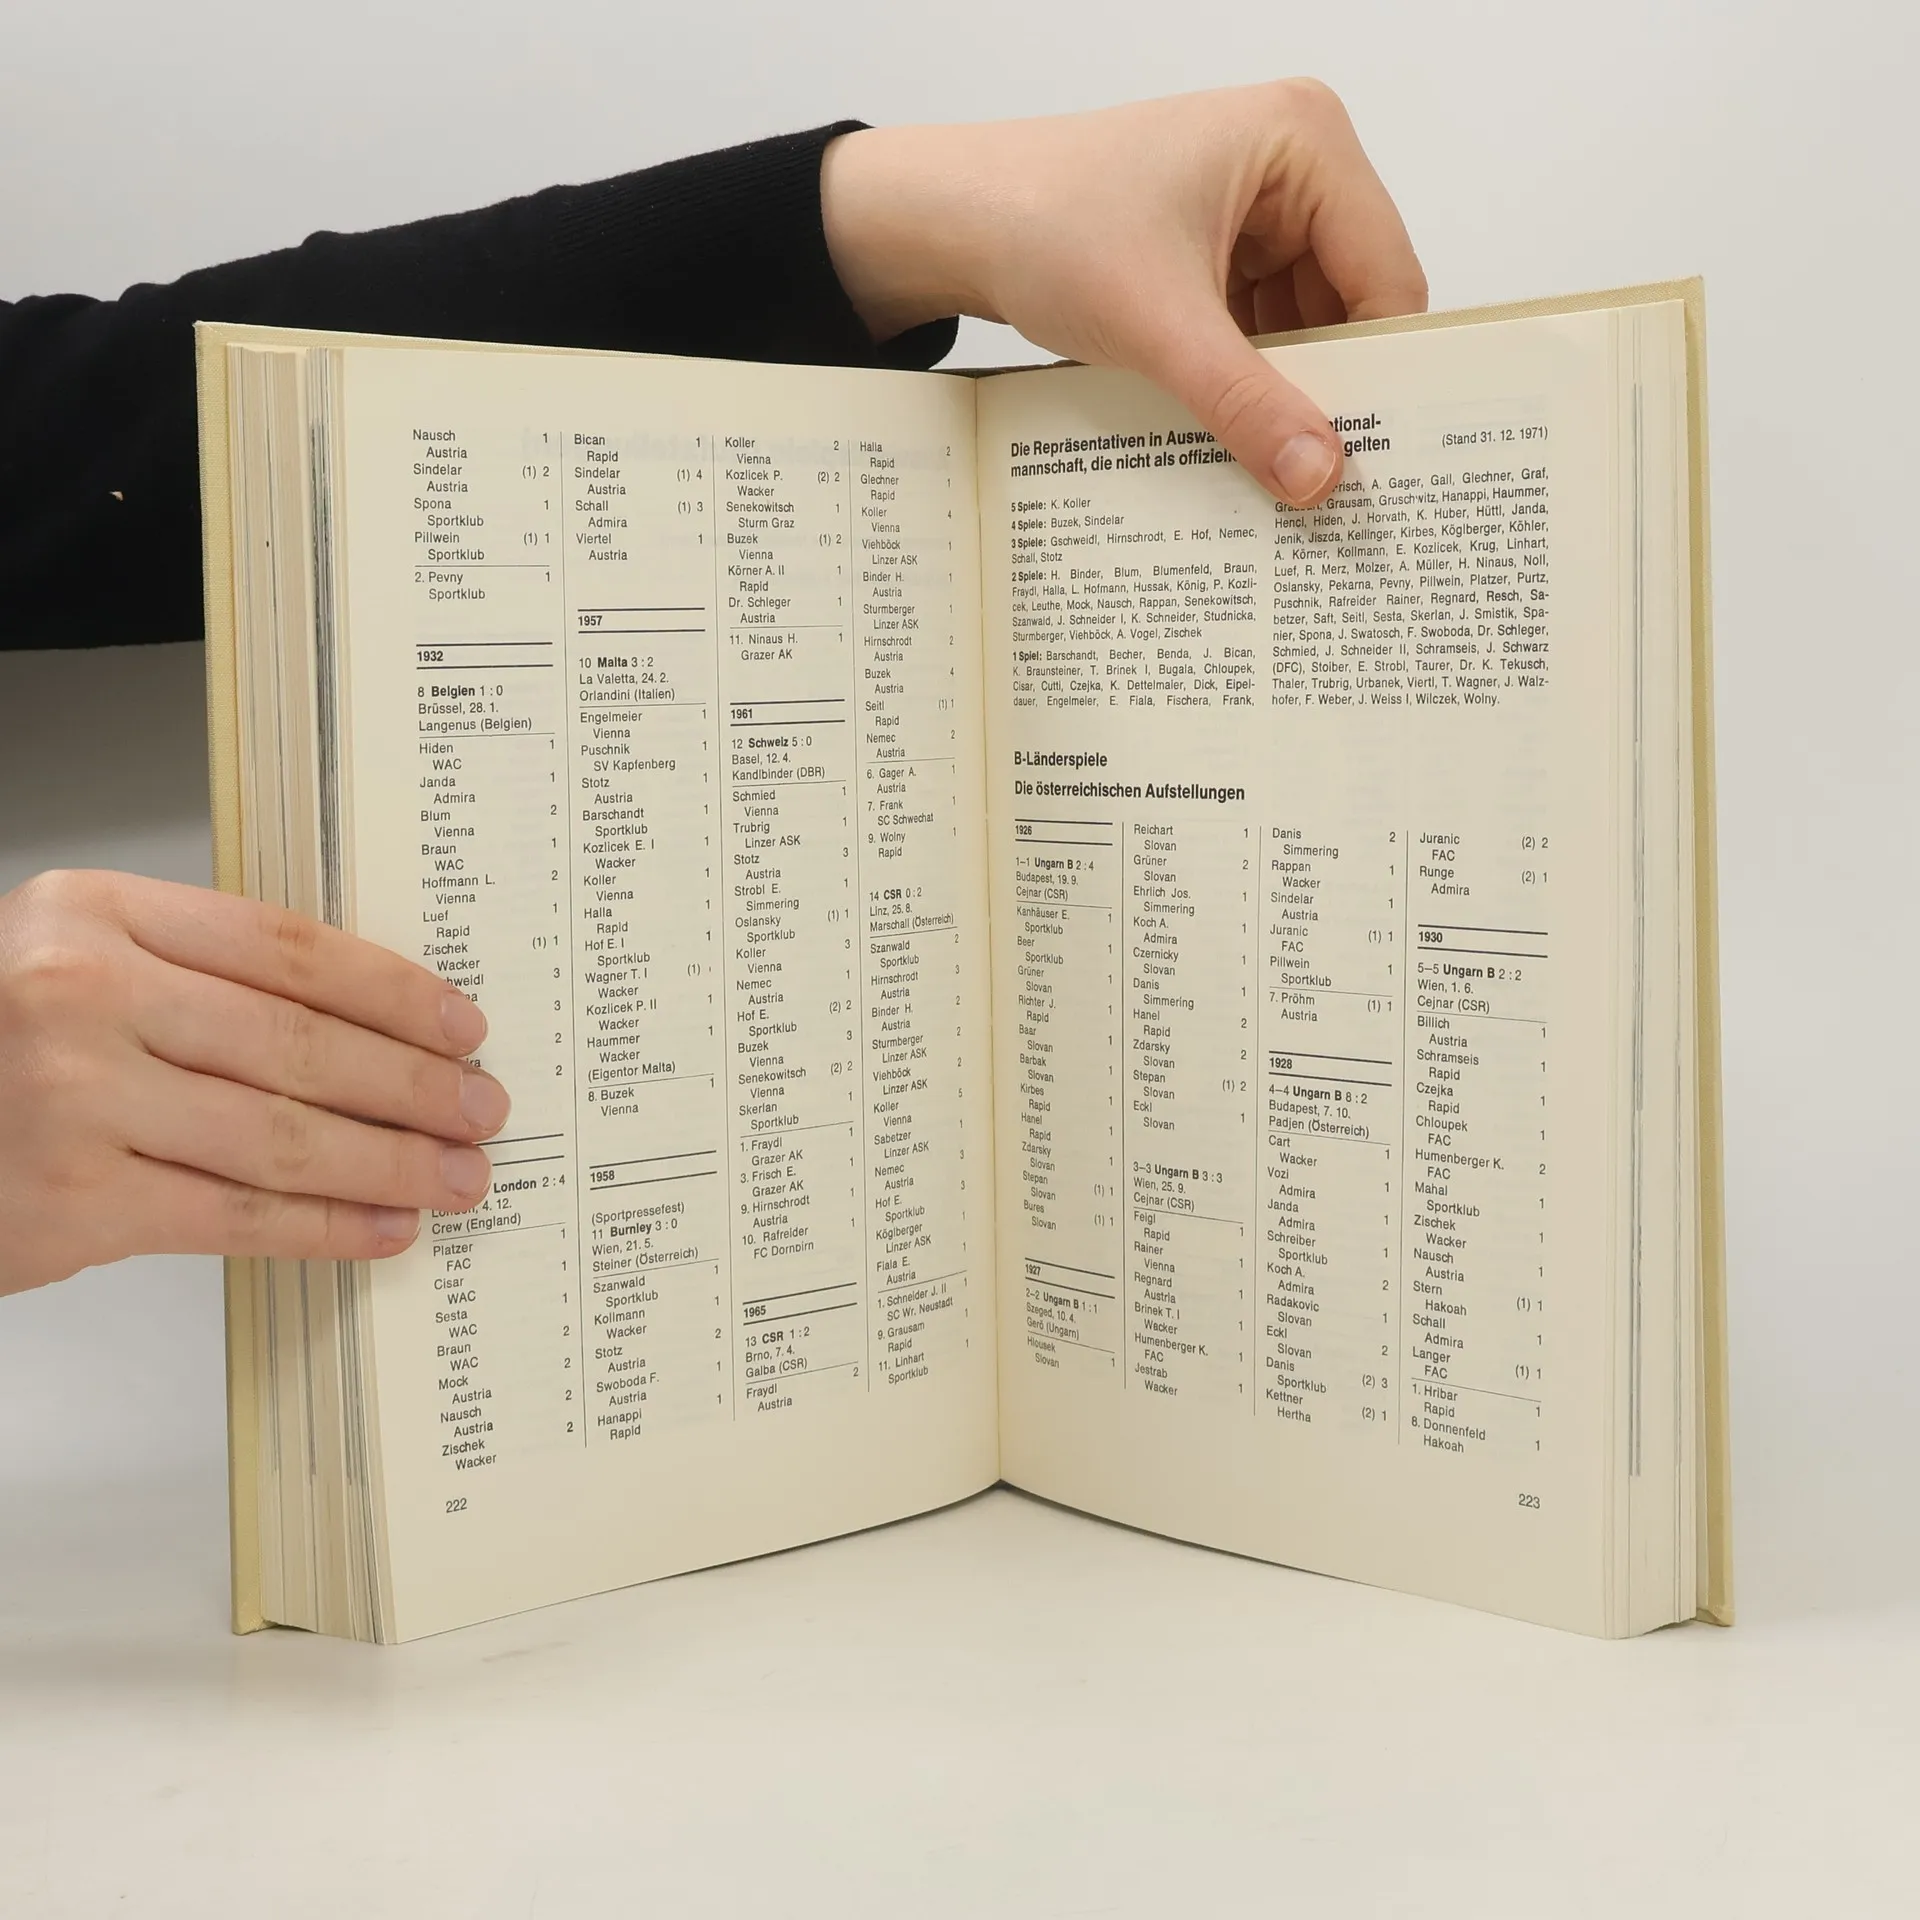 Nausch 1
Austria
Sindelar (1) 2
Austria
Spona 1
Sportklub
Pillwein (1) 1
Sportklub
2. Pevny 1
Sportklub
1932
8 Belgien 1 : 0
Brüssel, 28. 1.
Langenus (Belgien)
Hiden 1
WAC
Janda 1
Admira
Blum 2
Vienna
Braun 1
WAC
Hoffmann L. 2
Vienna
Luef 1
Rapid
Zischek (1) 1
Wacker
3
3
2
2
London 2 : 4
4. 12.
Crew (England)
Platzer 1
FAC
Cisar 1
WAC
Sesta 1
WAC
Braun 2
WAC
Mock 2
Austria
Nausch 2
Austria
Zischek 2
Wacker
222
Bican 1
Rapid
Sindelar (1) 4
Austria
Schall (1) 3
Admira
Viertel 1
Austria
1957
10 Malta 3 : 2
La Valetta, 24. 2.
Orlandini (Italien)
Engelmeier 1
Vienna
Puschnik 1
SV Kapfenberg
Stotz 1
Austria
Barschandt 1
Sportklub
Kozlicek E. I 1
Wacker
Koller 1
Vienna
Halla 1
Rapid
Hof E. I 1
Sportklub
Wagner T. I (1)
Wacker
Kozlicek P. II 1
Wacker
Haummer 1
Wacker
(Eigentor Malta)
8. Buzek 1
Vienna
1958
(Sportpressefest)
11 Burnley 3 : 0
Wien, 21. 5.
Steiner (Österreich)
Szanwald 1
Sportklub
Kollmann 1
Wacker
Stotz 2
Austria
Swoboda F. 1
Austria
Hanappi 1
Rapid
Koller 2
Vienna
Kozlicek P. (2) 2
Wacker
Senekowitsch 1
Sturm Graz
Buzek (1) 2
Vienna
Körner A. II 1
Rapid
Dr. Schleger 1
Austria
11. Ninaus H. 1
Grazer AK
1961
12 Schweiz 5 : 0
Basel, 12. 4.
Kandlbinder (DBR)
Schmied 1
Vienna
Trubrig 1
Linzer ASK
Stotz 3
Austria
Strobl E. 1
Simmering
Oslansky (1) 1
Sportklub
Koller 3
Vienna
Nemec 1
Austria
Hof E. (2) 2
Sportklub
Buzek 3
Vienna
Senekowitsch (2) 2
Vienna
Skerlan 1
Sportklub
1. Fraydl 1
Grazer AK
3. Frisch E. 1
Grazer AK
9. Hirnschrodt 1
Austria
10. Rafreider 1
FC Dornbirn
1965
13 CSR 1 : 2
Brno, 7. 4.
Galba (CSR)
Fraydl 2
Austria
Halla 2
Rapid
Glechner 1
Rapid
Koller 4
Vienna
Viehböck 1
Linzer ASK
Binder H. 1
Austria
Sturmberger 1
Linzer ASK
Hirnschrodt 2
Austria
Buzek 4
Austria
Seitl (1) 1
Rapid
Nemec 2
Austria
6. Gager A. 1
Austria
7. Frank 1
SC Schwechat
9. Wolny 1
Rapid
14 CSR 0 : 2
Linz, 25. 8.
Marschall (Österreich)
Szanwald 2
Sportklub
Hirnschrodt 3
Austria
Binder H. 2
Austria
Sturmberger 2
Linzer ASK
Viehböck 2
Linzer ASK
Koller 5
Vienna
Sabetzer 1
Linzer ASK
Nemec 3
Austria
Hof E. 3
Sportklub
Köglberger 1
Linzer ASK
Fiala E. 1
Austria
1. Schneider J. II 1
SC Wr. Neustadt
9. Grausam 1
Rapid
11. Linhart 1
Sportklub
Die Repräsentativen in
mannschaft, die nicht als gelten (Stand 31. 12. 1971)
5 Spiele: K. Koller
4 Spiele: Buzek, Sindelar
3 Spiele: Gschweidl, Hirnschrodt, E. Hof, Nemec,
Schall, Stotz
2 Spiele: H. Binder, Blum, Blumenfeld, Braun,
Fraydl, Halla, L. Hofmann, Hussak, König, P. Kozli-
cek, Leuthe, Mock, Nausch, Rappan, Senekowitsch,
Szanwald, J. Schneider I, K. Schneider, Studnicka,
Sturmberger, Viehböck, A. Vogel, Zischek
1 Spiel: Barschandt, Becher, Benda, J. Bican,
K. Braunsteiner, T. Brinek I, Bugala, Chloupek,
Cisar, Cutti, Czejka, K. Dettelmaier, Dick, Eipel-
dauer, Engelmeier, E. Fiala, Fischera, Frank,
A. Gager, Gall, Glechner, Graf,
Grausam, Gruschwitz, Hanappi, Haummer,
Hencl, Hiden, J. Horvath, K. Huber, Hüttl, Janda,
Jenik, Jiszda, Kellinger, Kirbes, Köglberger, Köhler,
A. Körner, Kollmann, E. Kozlicek, Krug, Linhart,
Luef, R. Merz, Molzer, A. Müller, H. Ninaus, Noll,
Oslansky, Pekarna, Pevny, Pillwein, Platzer, Purtz,
Puschnik, Rafreider Rainer, Regnard, Resch, Sa-
betzer, Saft, Seitl, Sesta, Skerlan, J. Smistik, Spa-
nier, Spona, J. Swatosch, F. Swoboda, Dr. Schleger,
Schmied, J. Schneider II, Schramseis, J. Schwarz
(DFC), Stoiber, E. Strobl, Taurer, Dr. K. Tekusch,
Thaler, Trubrig, Urbanek, Viertl, T. Wagner, J. Walz-
hofer, F. Weber, J. Weiss I, Wilczek, Wolny.
B-Länderspiele
Die österreichischen Aufstellungen
1926
1–1 Ungarn B 2 : 4
Budapest, 19. 9.
Cejnar (CSR)
Kanhäuser E. 1
Sportklub
Beer 1
Sportklub
Grüner 1
Slovan
Richter J. 1
Rapid
Baar 1
Slovan
Barbak 1
Slovan
Kirbes 1
Rapid
Hanel 1
Rapid
Zdarsky 1
Slovan
Stepan (1) 1
Slovan
Bures (1) 1
Slovan
1927
2–2 Ungarn B 1 : 1
Szeged, 10. 4.
Gerö (Ungarn)
Hlousek 1
Slovan
Reichart 1
Slovan
Grüner 2
Slovan
Ehrlich Jos. 1
Simmering
Koch A. 1
Admira
Czernicky 1
Slovan
Danis 1
Simmering
Hanel 2
Rapid
Zdarsky 2
Slovan
Stepan (1) 2
Slovan
Eckl 1
Slovan
3–3 Ungarn B 3 : 3
Wien, 25. 9.
Cejnar (CSR)
Feigl 1
Rapid
Rainer 1
Vienna
Regnard 1
Austria
Brinek T. I 1
Wacker
Humenberger K. 1
FAC
Jestrab 1
Wacker
Danis 2
Simmering
Rappan 1
Wacker
Sindelar 1
Austria
Juranic (1) 1
FAC
Pillwein 1
Sportklub
7. Pröhm (1) 1
Austria
1928
4–4 Ungarn B 8 : 2
Budapest, 7. 10.
Padjen (Österreich)
Cart 1
Wacker
Vozi 1
Admira
Janda 1
Admira
Schreiber 1
Sportklub
Koch A. 2
Admira
Radakovic 1
Slovan
Eckl 2
Slovan
Danis (2) 3
Sportklub
Kettner (2) 1
Hertha
Juranic (2) 2
FAC
Runge (2) 1
Admira
1930
5–5 Ungarn B 2 : 2
Wien, 1. 6.
Cejnar (CSR)
Billich 1
Austria
Schramseis 1
Rapid
Czejka 1
Rapid
Chloupek 1
FAC
Humenberger K. 2
FAC
Mahal 1
Sportklub
Zischek 1
Wacker
Nausch 1
Austria
Stern (1) 1
Hakoah
Schall 1
Admira
Langer (1) 1
FAC
1. Hribar 1
Rapid
8. Donnenfeld 1
Hakoah
223